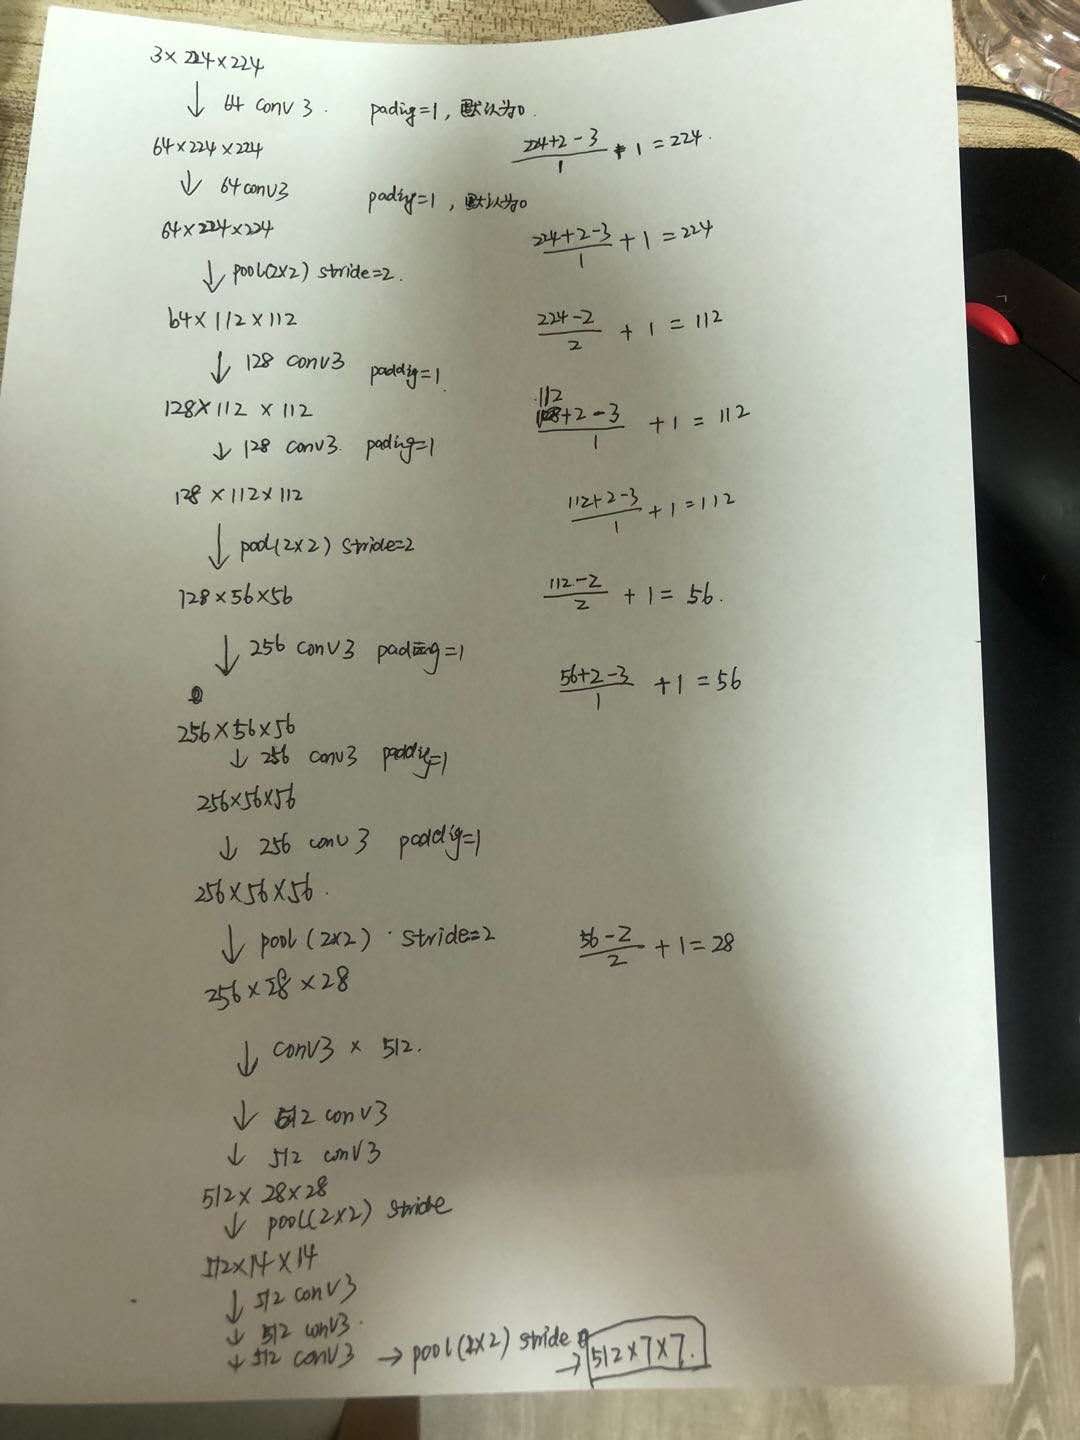 3×224×224
↓ 64 conv 3. pading=1, 默认为0.
64×224×224
(224+2-3)/1 + 1 = 224.
↓ 64 conv3 pading=1, 默认为0
64×224×224
(224+2-3)/1 + 1 = 224
↓ pool(2×2) stride=2.
64×112×112
(224-2)/2 + 1 = 112
↓ 128 conv3 padding=1
128×112×112
(112+2-3)/1 + 1 = 112
↓ 128 conv3. pading=1
128×112×112
(112+2-3)/1 + 1 = 112
↓ pool(2×2) stride=2
128×56×56
(112-2)/2 + 1 = 56.
↓ 256 conv3 pading=1
(56+2-3)/1 + 1 = 56
256×56×56
↓ 256 conv3 padding=1
256×56×56
↓ 256 conv3 padding=1
256×56×56.
↓ pool(2×2) stride=2
(56-2)/2 + 1 = 28
256×28×28
↓ conv3 × 512.
↓ 512 conv3
↓ 512 conv3
512×28×28
↓ pool(2×2) stride
512×14×14
↓ 512 conv3
↓ 512 conv3.
↓ 512 conv3 → pool(2×2) stride
→ 512×7×7.